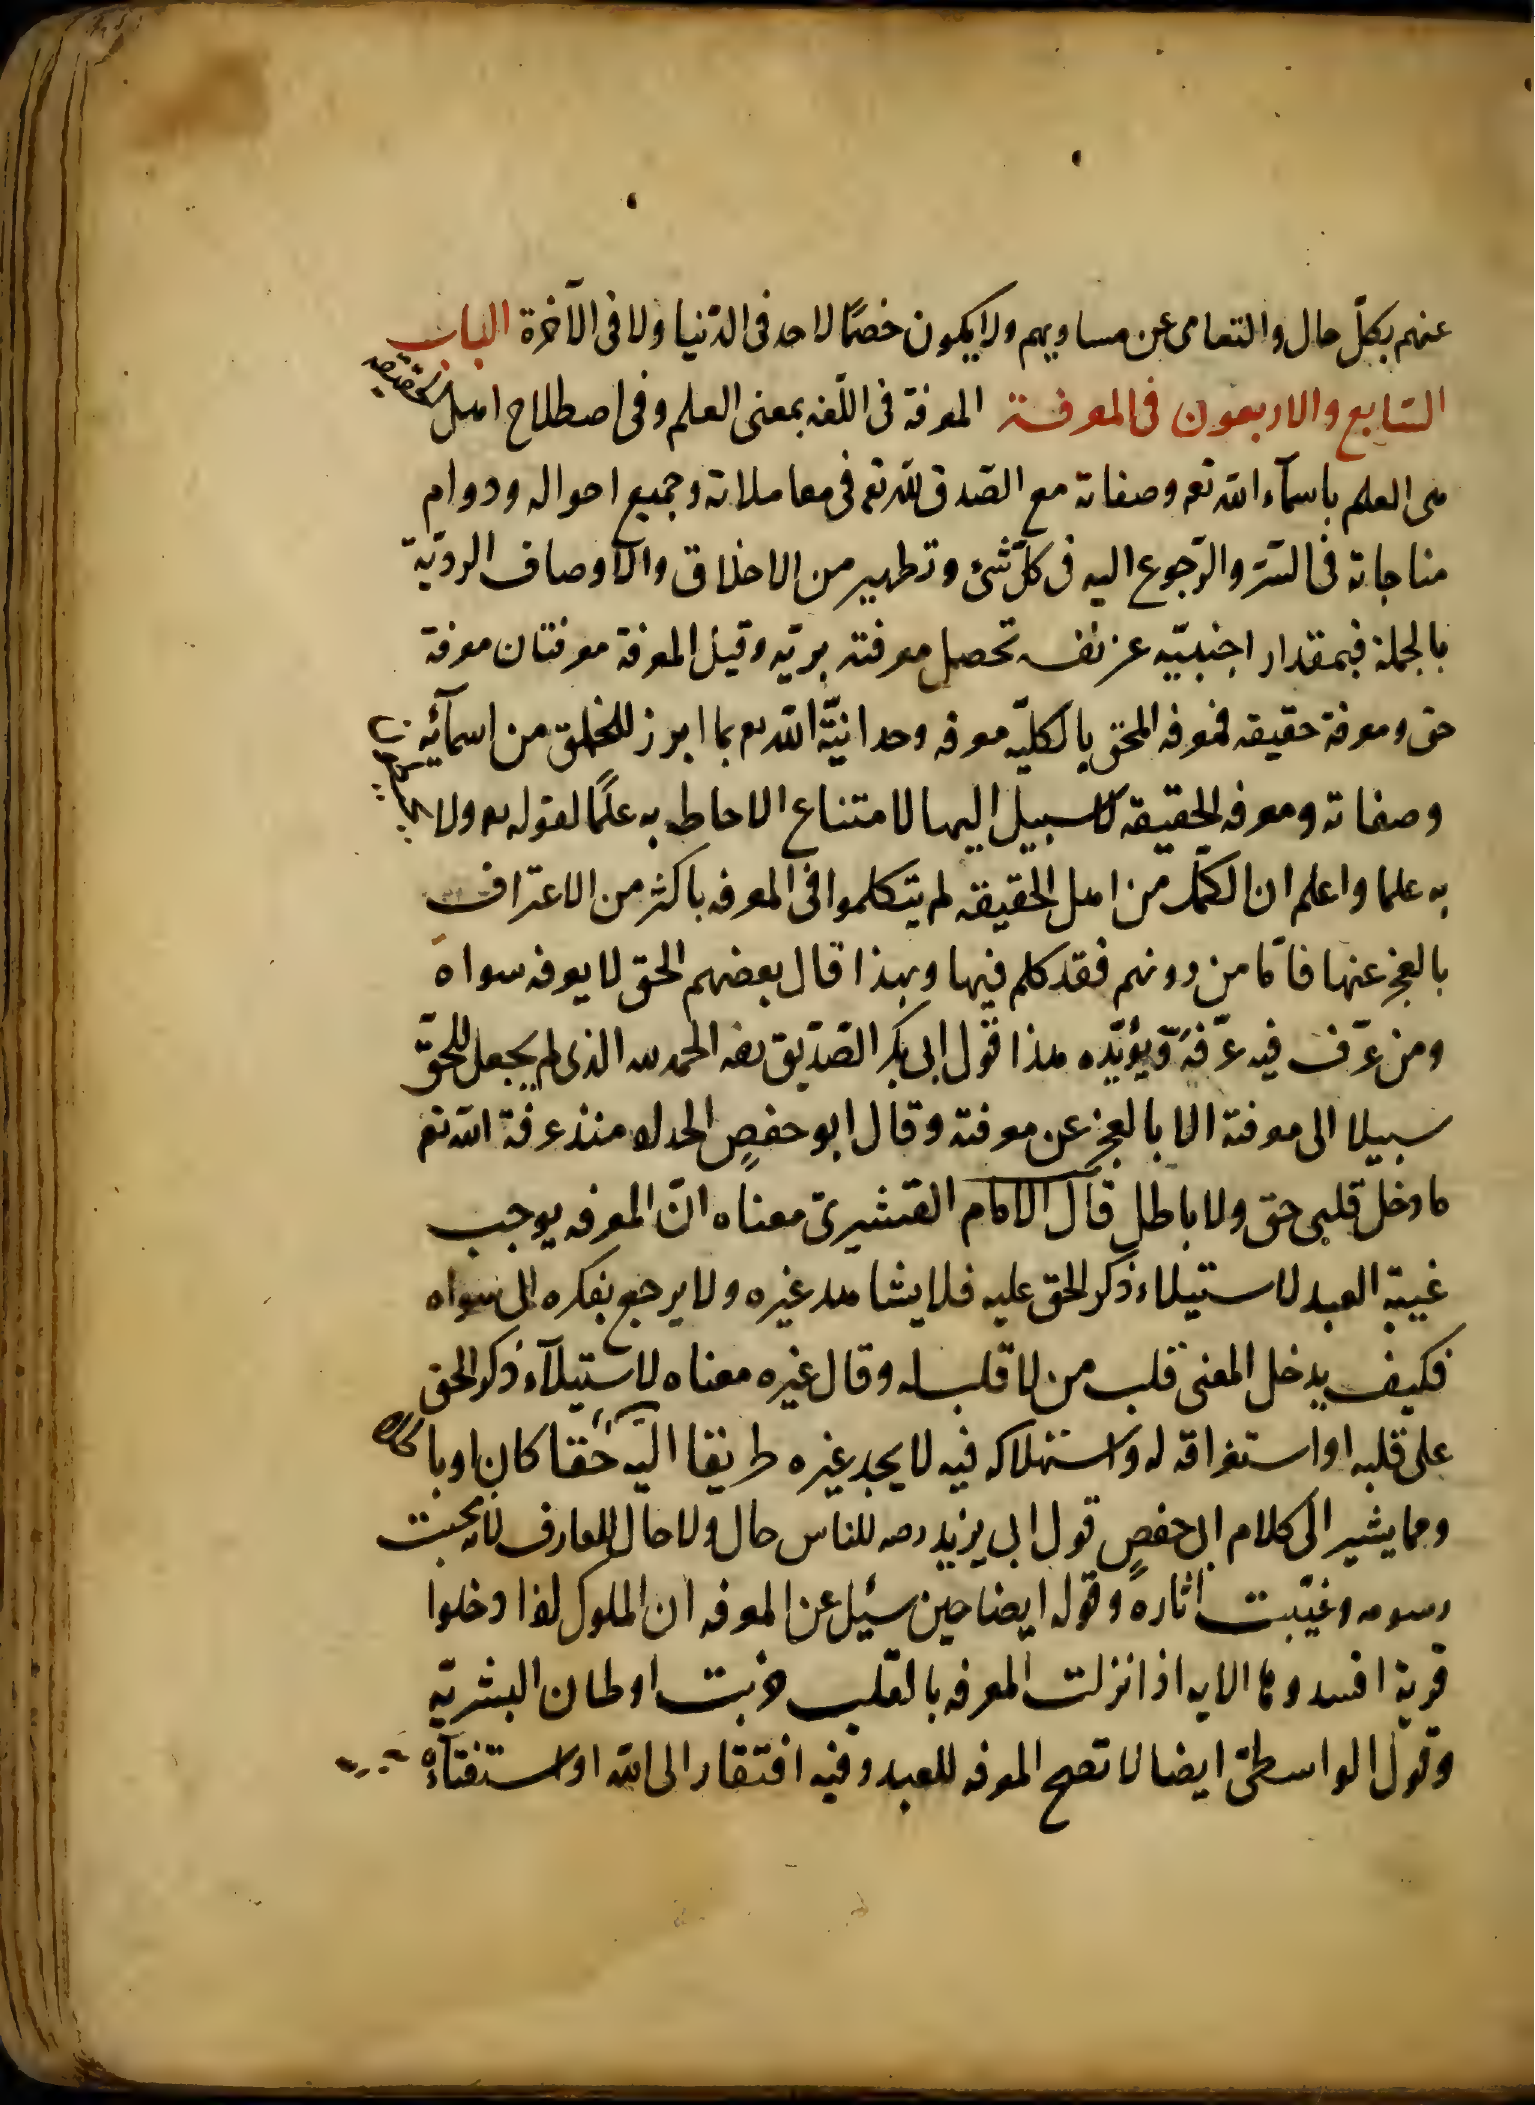 عنهم بكلّ حال والتعامى عن مساويهم ولا يكون خصمًا لاحد فى الدّنيا ولا فى الآخرة الباب
السّابع والاربعون فى المعرفة المعرفة فى اللّغة بمعنى العلم وفى اصطلاح اهل الحقيقة
هى العلم باسمآء اللّه تع وصفاته مع الصّدق للّه تع فى معاملاته وجميع احواله ودوام
مناجاته فى السّرّ والرّجوع اليه فى كلّ شئ وتطهير من الاخلاق والاوصاف الرديّة
بالجملة فبمقدار اجنبيّه عن نفسه تحصل معرفته بربّه وقيل المعرفة معرفتان معرفة
حق ومعرفة حقيقه فمعرفه الحق بالكليّه معرفه وحدانيّة اللّه تع بما ابرز للخلق من اسمآئه
وصفاته ومعرفه الحقيقه لا سبيل اليها لامتناع الاحاطه به علمًا لقوله تع ولا يحيطون
به علما واعلم ان الكمّل من اهل الحقيقه لم يتكلموا فى المعرفه باكثر من الاعتراف
بالعجز عنها فامّا من دونهم فقد كلم فيها وبهذا قال بعضهم الحق لا يعرفه سواه
ومن عرّف فيه عرّفه ويؤيّده هذا قول ابى بكر الصّدّيق رضه الحمد لله الذى لم يجعل للحقّ
سبيلا الى معرفته الا بالعجز عن معرفته وقال ابو حفصٍ الحداد منذ عرفة اللّه تع
ما دخل قلبى حق ولا باطل قال الامام القشيرىّ معناه انّ المعرفه يوجب
غيبة العبد لاستيلاء ذكر الحق عليه فلا يشاهد غيره ولا يرجع بفكره الى سواه
فكيف يدخل المعنى قلب من لا قلب له وقال غيره معناه لاستيلآء ذكر الحق
على قلبه او استغراقه له واستهلاكه فيه لا يجد غيره طريقا اليه حقّا كان او باطلا
ومما يشير الى كلام ابى حفصٍ قول ابى يزيد رحه للناس حال ولا حال للعارف لانه محيت
رسومه وغيّبت اثاره وقوله ايضا حين سئيل عن المعرفه ان الملوك اذا دخلوا
قرية افسدوها الايه اذا نزلت المعرفه بالقلب خربت اوطان البشريّه
وقول الواسطىّ ايضا لا تصح المعرفه للعبد وفيه افتقار الى اللّه او استغنآء